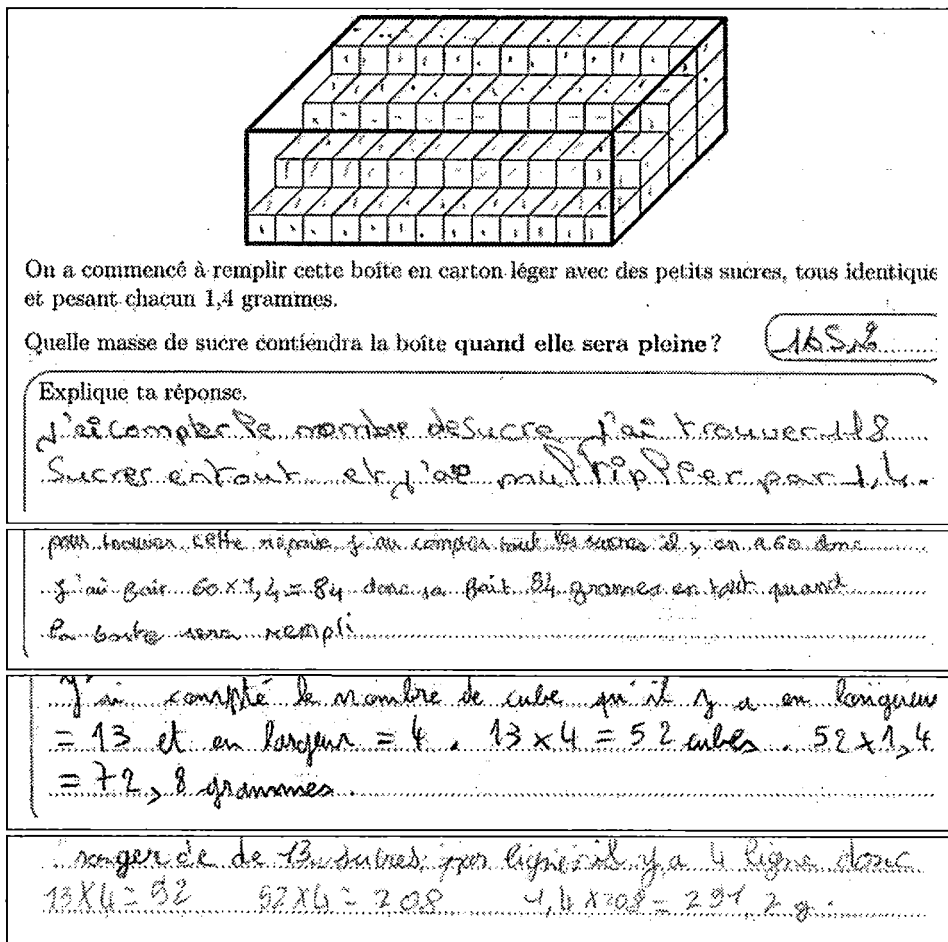 On a commencé à remplir cette boîte en carton léger avec des petits sucres, tous identique
et pesant chacun 1,4 grammes.
Quelle masse de sucre contiendra la boîte quand elle sera pleine ? 165,2
Explique ta réponse.
J'ai compter le nombre de sucre j'ai trouver 118
Sucres entout et j'ai multiplier par 1,4.
pour trouver cette réponse j'ai compter tout les sucres il y en a 60 donc
j'ai fait 60 x 1,4 = 84 donc sa fait 84 grames en tout quand
la boite sera rempli
J'ai compté le nombre de cube qu'il y a en longueur
= 13 et en largeur = 4 . 13 x 4 = 52 cubes . 52 x 1,4
= 72,8 grammes.
de 13 sucres par ligne il y a 4 ligne donc
13 X 4 = 52 52 X 4 = 208 1,4 X 208 = 291,2 g.